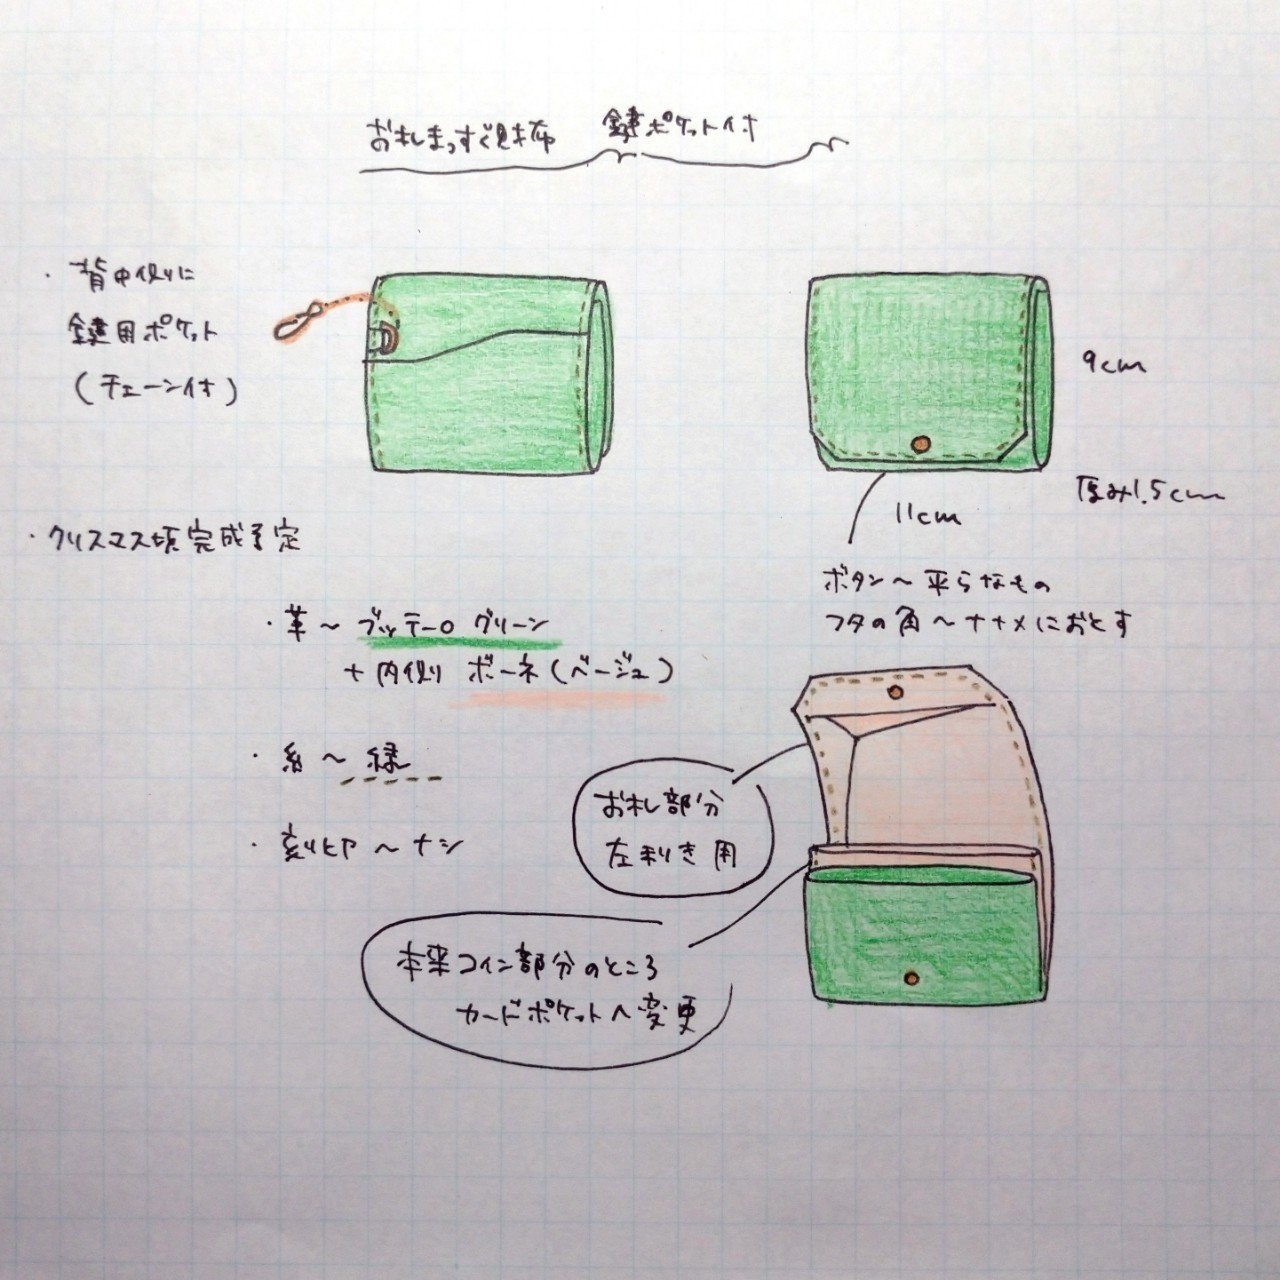 お札まっすぐ財布 鍵ポケット付
・背中側に
鍵用ポケット
(チェーン付)
9cm
厚み1.5cm
11cm
・クリスマス頃完成予定
ボタン〜平らなもの
フタの角〜ナナメにおとす
・革〜ブッテーログリーン
+内側 ボーネ(ベージュ)
・糸〜緑
・刻印〜ナシ
お札部分
左利き用
本来コイン部分のところ
カードポケットへ変更